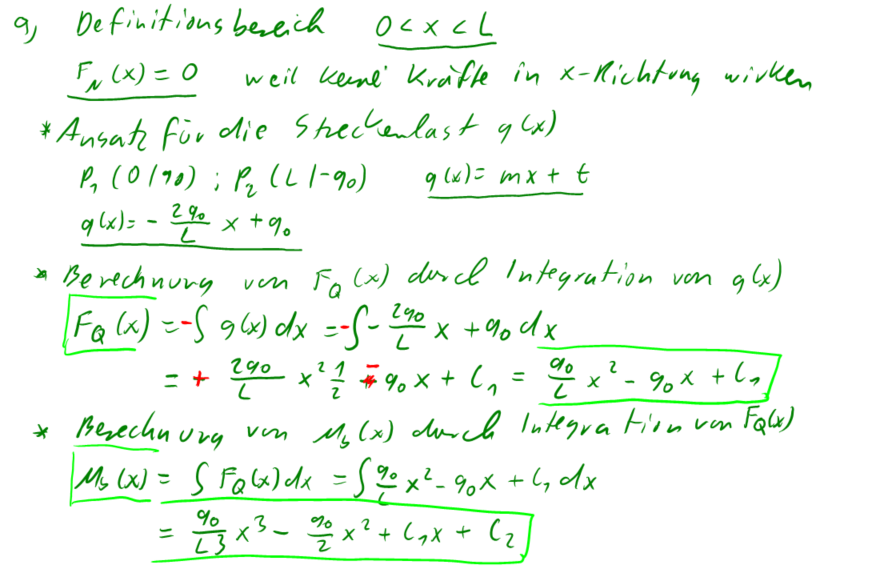 a) Definitionsbereich 0 < x < L
F_N(x) = 0 weil keine Kräfte in x-Richtung wirken
* Ansatz für die Streckenlast q(x)
P_1 (0/q_0) ; P_2 (L/-q_0) q(x) = mx + t
q(x) = - 2q_0/L x + q_0
* Berechnung von F_Q(x) durch Integration von q(x)
F_Q(x) = -∫ q(x) dx = -∫ - 2q_0/L x + q_0 dx
= + 2q_0/L x² 1/2 - q_0 x + C_1 = q_0/L x² - q_0 x + C_1
* Berechnung von M_b(x) durch Integration von F_Q(x)
M_b(x) = ∫ F_Q(x) dx = ∫ q_0/L x² - q_0 x + C_1 dx
= q_0/L3 x³ - q_0/2 x² + C_1 x + C_2